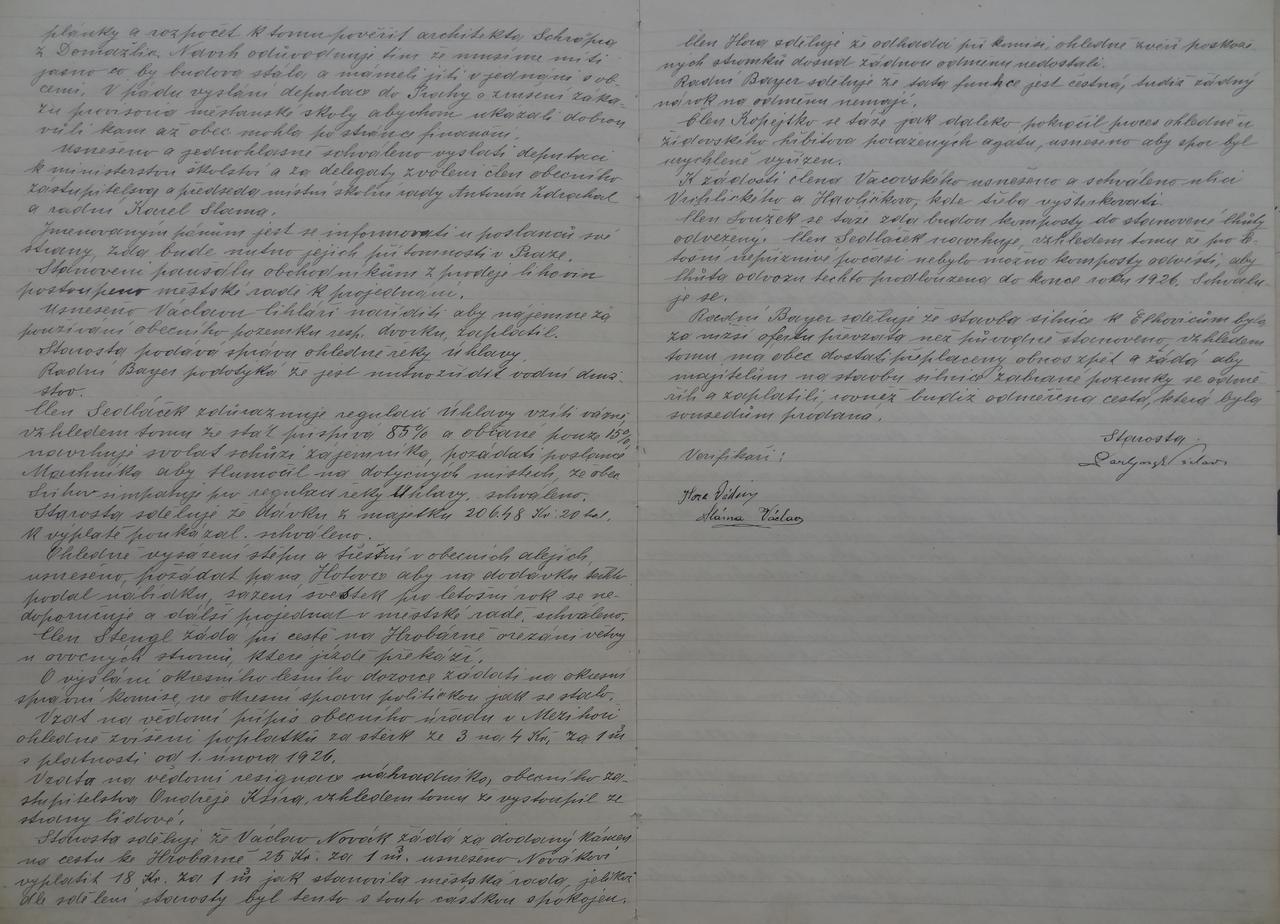 plánky a rozpočet k tomu pověřit architekta Schröpra
z Domažlic. Návrh odůvodňuje tím že musíme míti
jasno co by budova stála, a mámeli jíti v jednání s ob-
cemi. V pádu vyslání deputace do Prahy o zrušení záka-
zu provisoria měšťanské školy abychom ukázali dobrou
vůli kam až obec mohla po stránce finanční.
Usneseno a jednohlasně schváleno vyslati deputaci
k ministerstvu školství a za delegáty zvoleni člen obecního
zastupitelstva a předseda místní školní rady Antonín Zdráhal
a radní Karel Sláma.
Jmenovaným pánům jest se informovati u poslanců své
strany, zda bude nutno jejich přítomnosti v Praze.
Stanovení paušálu obchodníkům z prodeje lihovin
postoupeno městské radě k projednání.
Usneseno Václavu Cihlári naříditi aby nájemné za
používání obecního pozemku resp. dvorku, zaplatil.
Starosta podává správu ohledně řeky Úhlavy.
Radní Bayer podotýká že jest nutno zřídit vodní druž-
stvo.
Člen Sedláček zdůrazňuje regulaci Úhlavy vzíti vážně,
vzhledem tomu že stát přispívá 85% a občané pouze 15%,
navrhuje svolat schůzi zájemníků, požádati poslance
Machníka aby tlumočil na dotyčných místech, že obec
Švihov simpatuje pro regulaci řeky Úhlavy. schváleno.
Starosta sděluje že dávku z majetku 20648 Kč 20 hal.
k výplatě poukázal. schváleno.
Ohledně vysázení štěpů a třešní v obecních alejích,
usneseno, požádat pana Hotovce aby na dodávku těchto
podal nabídku, sázení švestek pro letošní rok se ne-
doporučuje a další projednat v městské radě. schváleno.
Člen Stengl žádá při cestě na Hrobárně ořezání větví
u ovocných stromů, které jízdě překáží.
O vyslání okresního lesního dozorce žádati na okresní
správní komise, ne okresní správu politickou jak se stalo.
Vzat na vědomí přípis obecního úřadu v Mezihoří
ohledně zvíšení poplatků za štěrk ze 3 na 4 Kč, za 1 m³
s platností od 1. února 1926.
Vzata na vědomí resignace náhradníka, obecního za-
stupitelstva Ondřeje Ksíra, vzhledem tomu že vystoupil ze
strany lidové.
Starosta sděluje že Václav Novák žádá za dodaný kámen
na cestu ke Hrobárně 25 Kč. za 1 m³. usneseno Novákovi
vyplatit 18 Kč. za 1 m³ jak stanovila městská rada, jelikož
dle sdělení starosty byl tento s touto částkou spokojen.
Člen Hora sděluje že odhadci při komisi, ohledně zvěří poškoze-
ných stromků dosud žádnou odměnu nedostali.
Radní Bayer sděluje že tato funkce jest čestná, tudíž žádný
nárok na odměnu nemají.
Člen Kopejtko se táže jak daleko pokročil proces ohledně u
židovského hřbitova poražených agátů, usneseno aby spor byl
urychleně vyřízen.
K žádosti člena Vacovského usneseno a schváleno ulici
Vrchlického a Havlíčkovo, kde třeba vyštěrkovati.
Člen Soužek se táže zda budou komposty do stanovené lhůty
odveženy. Člen Sedláček navrhuje, vzhledem tomu že pro le-
tošní nepříznivé počasí nebylo možno komposty odvésti, aby
lhůta odvozu těchto prodloužena do konce roku 1926. Schvalu-
je se.
Radní Bayer sděluje že stavba silnice k Elhovicům byla
za nižší ofertu převzata než původně stanoveno, vzhledem
tomu má obec dostati přeplacený obnos zpět a žádá aby
majitelům na stavbu silnice zabrané pozemky se odmě-
řili a zaplatili, rovněž budiž odměřena cesta, která byla
sousedům prodána.
Starosta:
Verifikáři:
Hora Václav
Sláma Václav